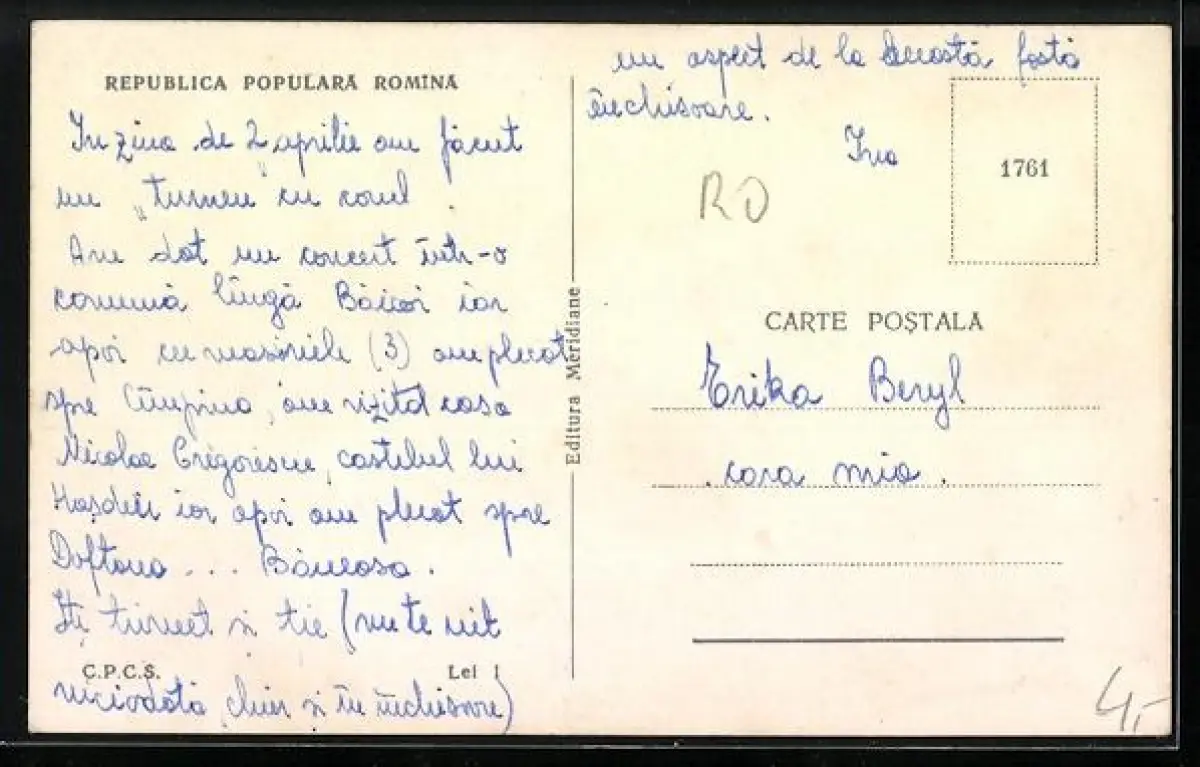 REPUBLICA POPULARĂ ROMÎNĂ
In ziua de 2 aprilie am făcut
un „turneu" cu corul.
Am dat un concert într-o
comună lîngă Băicoi iar
apoi cu mașinile (3) am plecat
spre Cîmpina, am vizitat casa
Nicolae Grigorescu, castelul lui
Hașdeu iar apoi am plecat spre
Doftana ... Băneasa.
Iți trimet și ție (nu te uit
C.P.C.S. Lei 1
niciodată, chiar și în închisoare)
Editura Meridiane
un aspect de la această fostă
închisoare.
Ina
RO
1761
CARTE POȘTALĂ
Erika Beryl
cara mia.
4,-